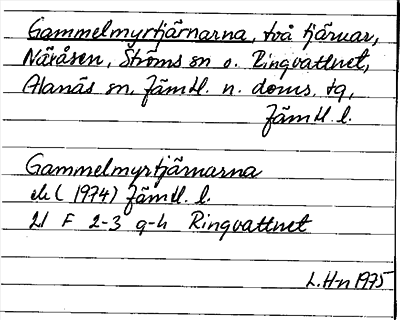 Gammelmyrtjärnarna, två tjärnar,
Näråsen, Ströms sn o. Ringvattnet,
Alanäs sn, Jämtl. n. doms. tg,
Jämtl. l.
Gammelmyrtjärnarna
ek ( 1974) Jämtl. l.
21 F 2-3 g-h Ringvattnet
L. H-n 1975